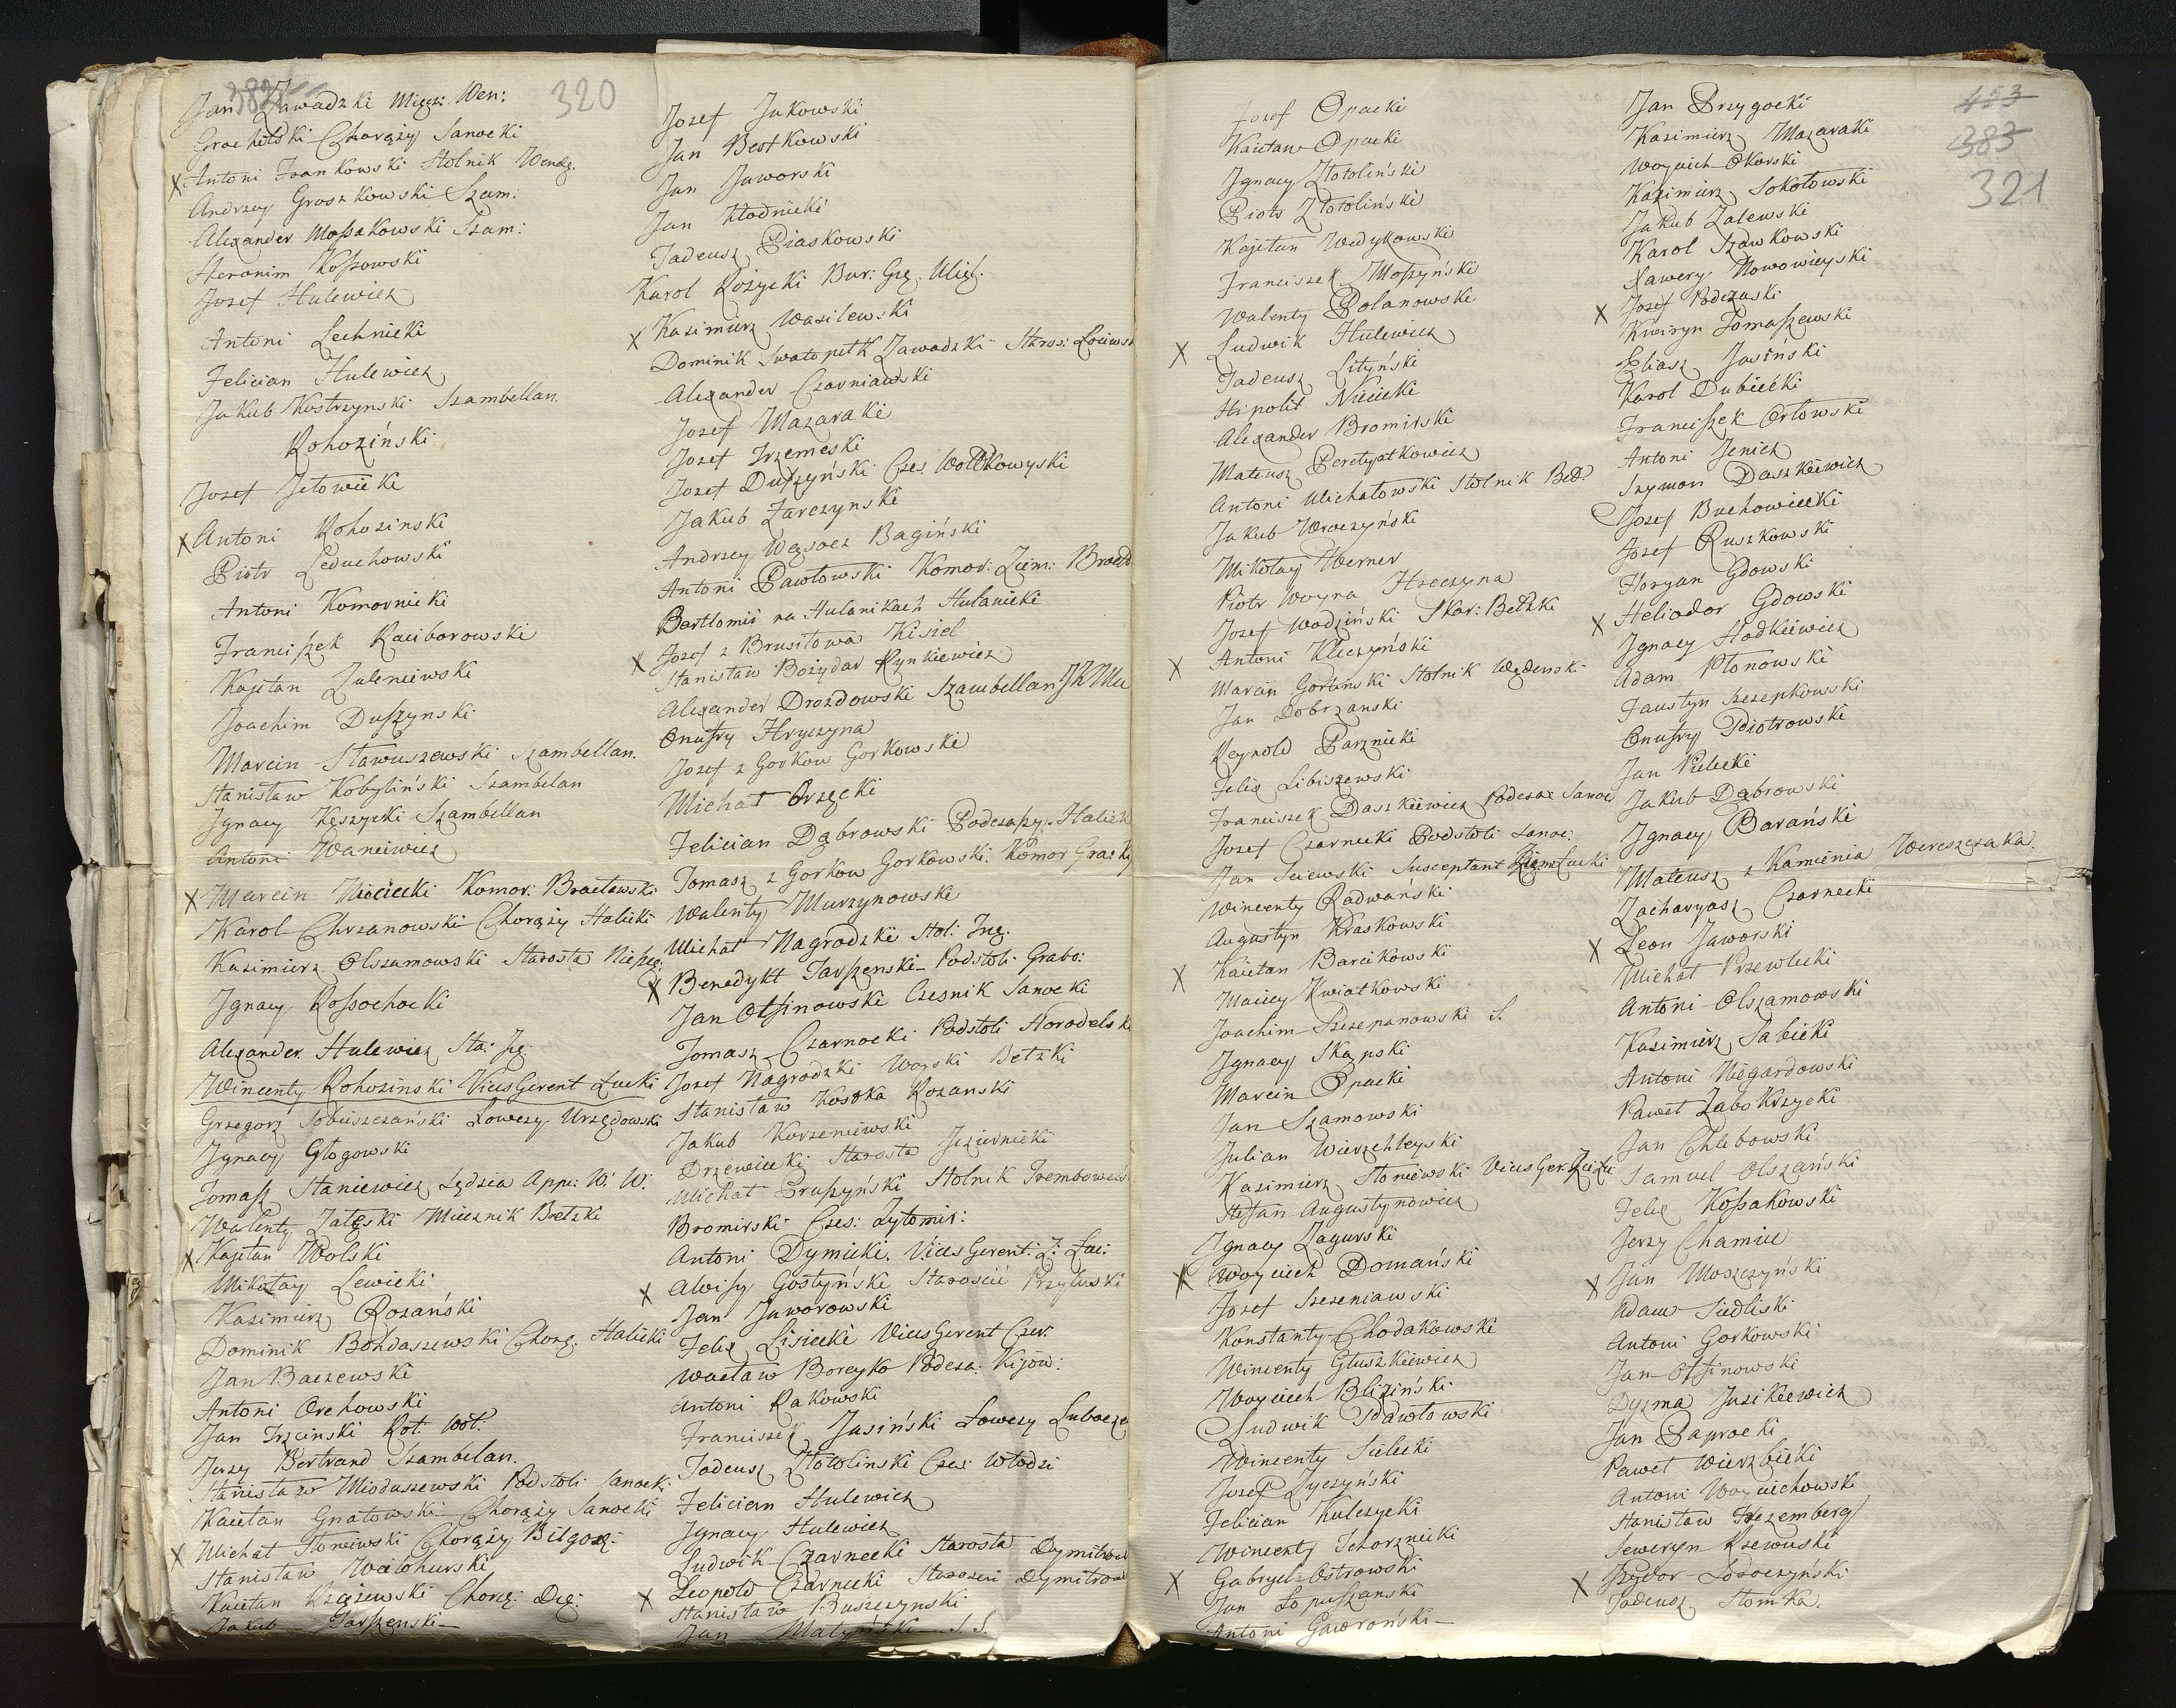 382
320
Jan Zawadzki Miecz: Wen:
Grocholski Chorąży Sanocki
x Antoni Jzankowski Stolnik Wendę.
Andrzey Groszkowski Szam:
Alexander Mossakowski Szam:
Heronim Kossowski
Jozef Hulewicz
Antoni Lechnicki
Felician Hulewicz
Jakub Kostrzynski Szambellan.
Rohoziński
Jozef Jełowicki
x Antoni Rohozinski
Piotr Leduchowski
Antoni Komornicki
Franciszek Raciborowski
Kajetan Zuleniewski
Joachim Duszynski
Marcin Stawuszewski Szambellan.
Stanisław Kobyliński Szambelan
Jgnacy Kęszycki Szambellan
Antoni Wanciwicz
x Marcin Nieciecki Komor: Bracławski
Karol Chrzanowski Chorąży Halicki
Kazimierz Olszamowski Starosta
Jgnacy Rossochocki
Alexander Hulewicz Sta: Ję:
Wincenty Rohozinski ViceGerent Łucki
Grzegorz Sobieszczański Łowczy Urzędowski
Jgnacy Głogowski
Tomasz Staniewicz Sędzia App: W: W:
Walenty Załęski Miecznik Bełzki
x Kajetan Wolski
Mikołay Lewicki
Kazimierz Rozański
Dominik Bohdaszewski Chorą: Halicki
Jan Baczewski
Antoni Orchowski
Jan Trzciński Rot: Woł:
Jerzy Bertrand Szambelan.
Stanisław Mioduszewski Podstoli Sanock:
Kaietan Gnatowski Chorąży Sanocki
x Michał Stoniewski Chorąży Bilgor:
Stanisław Waiohurski
Kaietan Krajewski Chorą: Drę:
Jakub Jarszenski
Jozef Jukowski
Jan Bestkowski
Jan Jaworski
Jan Kłodnicki
Tadeusz Piaskowski
Karol Rożycki Bur: Grę. Mięl.
x Kazimierz Wasilewski
Dominik Swatopełk Zawadzki Staros: Łoiows
Alexander Czarniawski
Jozef Mazaraki
Jozef Trzemeski
Jozef Duszyński Czes Wołkowyski
Jakub Zarczynski
Andrzey Węsocz Bagiński
Antoni Pawłowski Komor: Ziem: Bracł
Bartłomiy na Hulanikach Hulanicki
x Jozef z Brusiłowa Kisiel
Stanisław Bożydar Rynkiewicz
Alexander Drozdowski Szambellan JKMu
Onufry Hryczyna
Jozef z Gorkow Gorkowski
Michał Orzęcki
Felician Dąbrowski Podczaszy Halick
Tomasz z Gorkow Gorkowski. Komor Gra:
Walenty Murzynowski
Michał Nagrodzki Stol: Jnę.
x Benedykt Jarszenski Podstoli Grabo:
Jan Ossinowski Czesnik Sanocki
Tomasz Czarnocki Podstoli Horodelsk
Jozef Nagrodzki Woyski Bełzki
Stanisław Kostka Rozanski
Jakub Korzeniewski
Drzewiecki Starosta Jeziernicki
Michał Pruszyński Stolnik Trembowels
Bromirski Czes: Żytomir:
Antoni Dymicki. ViceGerent: Z: Łuc:
x Aloizy Gostyński Starościć Przyłuski
Jan Jaworowski
Felix Lisiecki ViceGerent Czer.
Wacław Boreyko Podcza: Kijow:
Antoni Rakowski
Franciszek Jasiński Łowczy Lubacze
Tadeusz Złotolinski Czes: Włodzi
Felician Hulewicz
Jgnacy Hulewicz
Ludwik Czarnecki Starosta Dymitrow
x Leopold Czarnecki Staroscic Dymitrow
Stanisław Buszczynski
Jan Matyński S S.
Jozef Opacki
Kaietan Opacki
Jgnacy Złotoliński
Piotr Złotoliński
Kajetan Wedykowski
Franciszek Moszyński
Walenty Polanowski
x Ludwik Hulewicz
Tadeusz Lityński
Hipolit Niecicki
Alexander Bromirski
Mateusz Peretyatkowicz
Antoni Michałowski Stolnik Beł:
Jakub Wroczyński
Mikołay Werner
Piotr Woyna Hreczyna
Jozef Wodziński Skar: Bełzki
x Antoni Kleczyński
Marcin Gorlinski Stolnik Wędenski
Jan Dobrzanski
Reynold Parznicki
Felix Libiszewski
Franciszek Daszkiewicz Podczas Sanoc
Jozef Czarnecki Podstoli Sanoc:
Jan Sciewski Susceptant Ziem Łucki
Wincenty Radwański
Augustyn Kraskowski
x Kaietan Barcikowski
Maciey Kwiatkowski
Joachim Szczepanowski S.
Jgnacy Skapski
Marcin Opacki
Jan Szamowski
Julian Wierzchleyski
Kazimierz Stoniewski ViceGer: Zie: Łu
Stefan Augustynowicz
Jgnacy Zagurski
x Woyciech Domański
Jozef Szczeniawski
Konstanty Chodakowski
Wincenty Głuszkiewicz
Woyciech Bliziński
Ludwik Pawłowski
Wincenty Sielecki
Jozef Życzyński
Felician Kulczycki
Wincenty Tchorznicki
x Gabryel Ostrowski
Jan Łopuszanski
Antoni Gawroński
453
383
321
Jan Przygocki
Kazimierz Mazaraki
Woyciech Okorski
Kazimierz Sokołowski
Jakub Zalewski
Karol Szawkowski
Xawery Nowowieyski
x Jozef Podczaski
Kwiryn Tomaszewski
Eliasz Jasiński
Karol Dubiecki
Franciszek Orłowski
Antoni Jenicz
Szymon Daszkiewicz
Jozef Buchowiecki
Jozef Ruszkowski
Floryan Gdowski
x Heliodor Gdowski
Jgnacy Hodkiewicz
Adam Płonowski
Faustyn Szczepkowski
Onufry Piotrowski
Jan Pielecki
Jakub Dąbrowski
Jgnacy Barański
Mateusz z Kamienia Wereszczaka.
Zacharyasz Czarnecki
x Leon Jaworski
Michał Przewłocki
Antoni Olszamowski
Kazimierz Sabicki
Antoni Niegardowski
Paweł Zabokrzycki
Jan Chlebowski
Samuel Olszański
Felix Kossakowski
Jerzy Chamiec
x Jan Moszczyński
Adam Siedliski
Antoni Gorkowski
Jan Ossinowski
Dyzma Jusikiewicz
Jan Paprocki
Paweł Wierzbicki
Antoni Woyciechowski
Stanisław Herzemberg
Seweryn Rzewuski
x Jzydor Soroczyński
Tadeusz Słomka.